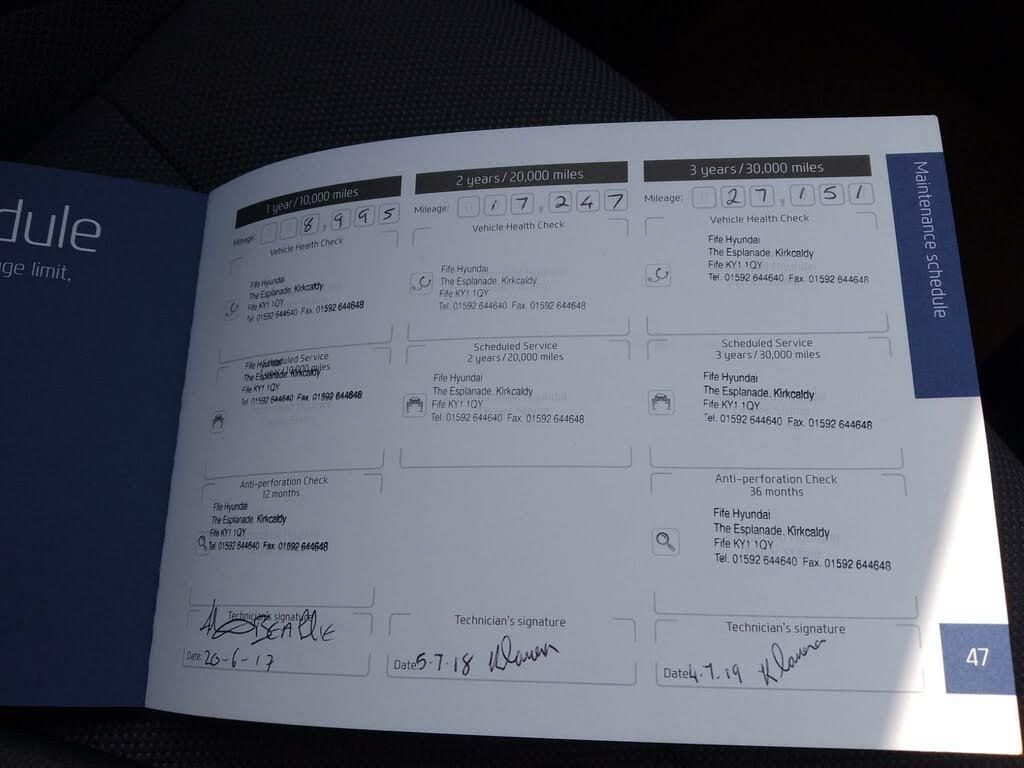 dule
ge limit,
1 year/10,000 miles
Mileage: 8,995
Vehicle Health Check
Fife Hyundai
The Esplanade. Kirkcaldy
Fife KY1 1QY
Tel. 01592 644640 Fax. 01592 644648
Scheduled Service
1 year/10,000 miles
Fife Hyundai
The Esplanade. Kirkcaldy
Fife KY1 1QY
Tel. 01592 644640 Fax. 01592 644648
Anti-perforation Check
12 months
Fife Hyundai
The Esplanade. Kirkcaldy
Fife KY1 1QY
Tel. 01592 644640 Fax. 01592 644648
Technician's signature
Date: 20-6-17
2 years/20,000 miles
Mileage: 17,247
Vehicle Health Check
Fife Hyundai
The Esplanade. Kirkcaldy
Fife KY1 1QY
Tel. 01592 644640 Fax. 01592 644648
Scheduled Service
2 years/20,000 miles
Fife Hyundai
The Esplanade. Kirkcaldy
Fife KY1 1QY
Tel. 01592 644640 Fax. 01592 644648
Technician's signature
Date 5.7.18
3 years/30,000 miles
Mileage: 27,151
Vehicle Health Check
Fife Hyundai
The Esplanade. Kirkcaldy
Fife KY1 1QY
Tel. 01592 644640 Fax. 01592 644648
Scheduled Service
3 years/30,000 miles
Fife Hyundai
The Esplanade. Kirkcaldy
Fife KY1 1QY
Tel. 01592 644640 Fax. 01592 644648
Anti-perforation Check
36 months
Fife Hyundai
The Esplanade. Kirkcaldy
Fife KY1 1QY
Tel. 01592 644640 Fax. 01592 644648
Technician's signature
Date 4.7.19
Maintenance schedule
47